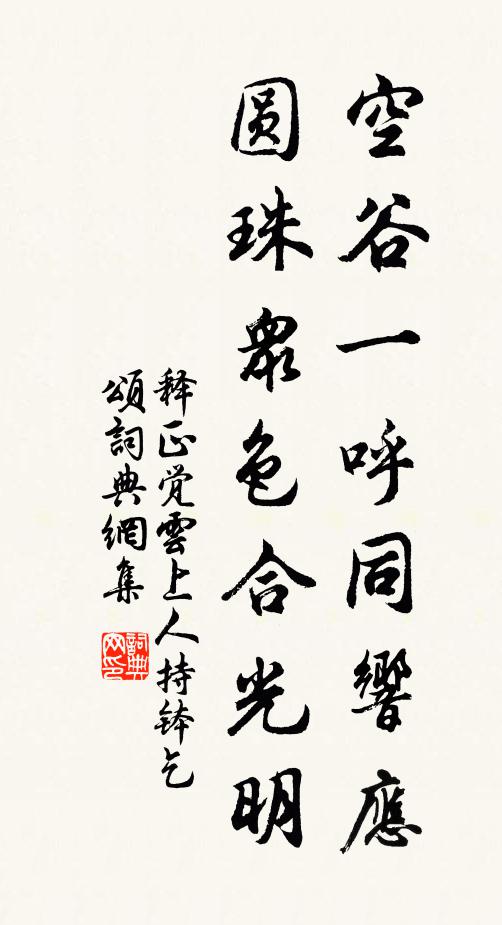 空谷一呼同響應
圓珠眾色合光明
释正觉雲上人持钵乞
頌詞典網集
詞典
网印